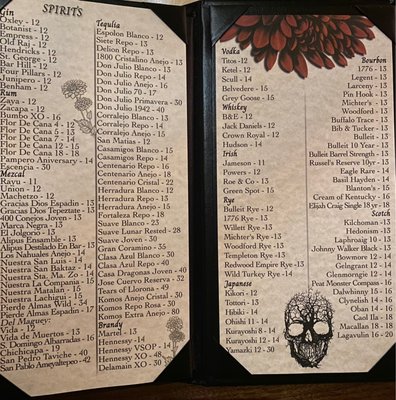 SPIRITS
Gin
Oxley - 12
Botanist - 12
Empress - 12
Old Raj - 12
Hendricks - 12
St. George - 12
Bar Hill - 12
Four Pillars - 12
Junipero - 12
Benham - 12
Rum
Zaya - 12
Zacapa - 12
Bumbo XO - 16
Flor De Cana 4 - 12
Flor De Cana 5 - 13
Flor De Cana 7 - 14
Flor De Cana 12 - 15
Flor De Cana 18 - 18
Pampero Aniversario - 14
Escencia - 30
Mezcal
Rayu - 11
Union - 12
Machetzo - 12
Gracias Dios Espadin - 13
Gracias Dios Tepeztate - 13
400 Conejos Joven - 13
Marca Negra - 13
El Jolgorio - 13
Alipus Ensamble - 13
Alipus Destilado En Bar - 13
Los Nahuales Anejo - 14
Nuestra San Luis - 14
Nuestra San Baktaz - 14
Nuestra Sta. Ma. Zo - 14
Nuestra La Compania - 15
Nuestra Matalan - 15
Nuestra Lachigui - 15
Pierde Almas Wild - 15
Pierde Almas Espadin - 17
Del Maguey:
Vida - 12
Vida de Muertos - 13
S. Domingo Albarradas - 16
Chichicapa - 19
San Pedro Taviche - 40
San Pablo Ameyaltepec - 42
Tequila
Espolon Blanco - 12
Siete Repo - 13
Delion Repo - 13
1800 Cristalino Anejo - 13
Don Julio Blanco - 13
Don Julio Repo - 14
Don Julio Anejo - 16
Don Julio 70 - 17
Don Julio Primavera - 30
Don Julio 1942 - 40
Corralejo Blanco - 13
Corralejo Repo - 14
Corralejo Anejo - 15
San Matias - 12
Casamigos Blanco - 13
Casamigos Repo - 14
Casamigos Anejo - 15
Centenario Repo - 16
Centenario Cristal - 22
Herradura Blanco - 12
Herradura Repo - 13
Herradura Anejo - 14
Fortaleza Repo - 18
Suave Blanco - 23
Suave Lunar Rested - 28
Suave Joven - 30
Gran Coramino - 35
Clasa Azul Blanco - 30
Clasa Azul Repo - 40
Casa Dragones Joven - 40
Jose Cuervo Reserva - 32
Tears of Llorona - 49
Komos Anejo Cristal - 30
Komos Repo Rosa - 30
Komos Extra Anejo - 50
Brandy
Martel - 13
Hennessy - 14
Hennessy VSOP - 14
Hennessy XO - 48
Delamain XO - 30
Vodka
Titos - 12
Ketel - 12
Scull - 14
Belvedere - 15
Grey Goose - 15
Whiskey
B&E - 12
Jack Daniels - 12
Crown Royal - 12
Hudson - 14
Irish
Jameson - 11
Powers - 12
Roe & Co - 13
Green Spot - 15
Rye
Bulleit Rye - 12
1776 Rye - 13
Willett Rye - 13
Michter's Rye - 13
Woodford Rye - 13
Templeton Rye - 13
Redwood Empire Rye - 13
Wild Turkey Rye - 14
Japanese
Kikori - 12
Tottori - 13
Hibiki - 14
Ohishi - 11 - 14
Kurayoshi 8 - 14
Kurayoshi 12 - 14
Yamazki 12 - 30
Bourbon
1776 - 13
Legent - 13
Larceny - 13
Pin Hook - 13
Michter's - 13
Woodford - 13
Buffalo Trace - 13
Bib & Tucker - 13
Bulleit - 13
Bulleit 10 Year - 13
Bulleit Barrel Strength - 13
Russel's Reserve 10yr - 13
Eagle Rare - 14
Basil Hayden - 14
Blanton's - 15
Cream of Kentucky - 16
Elijah Craig Single 18yr - 18
Scotch
Kilchoman - 13
Hedonism - 13
Laphroaig 10 - 13
Johnny Walker Black - 13
Bowmore 12 - 14
Gelngrant 12 - 14
Glenmorngie 12 - 14
Peat Monster Compass - 16
Dalwhinny 15 - 16
Clynelish 14 - 16
Oban 14 - 16
Caol Ila - 18
Macallan 18 - 18
Lagavulin 16 - 20